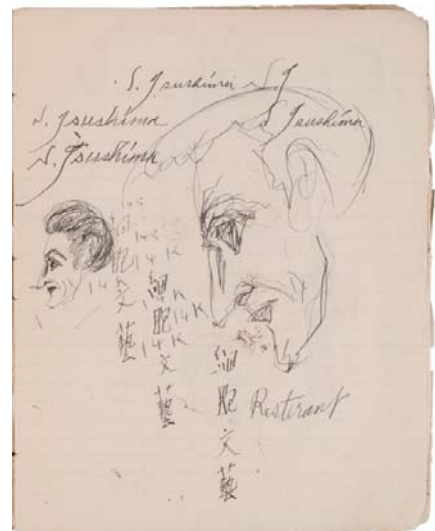 S. Tsushima S. T
S. Tsushima
S. Tsushima
S. Tsushima
14K
14K
14K
14K
14K
細胞文藝
細胞文藝
細胞文藝
Restirant